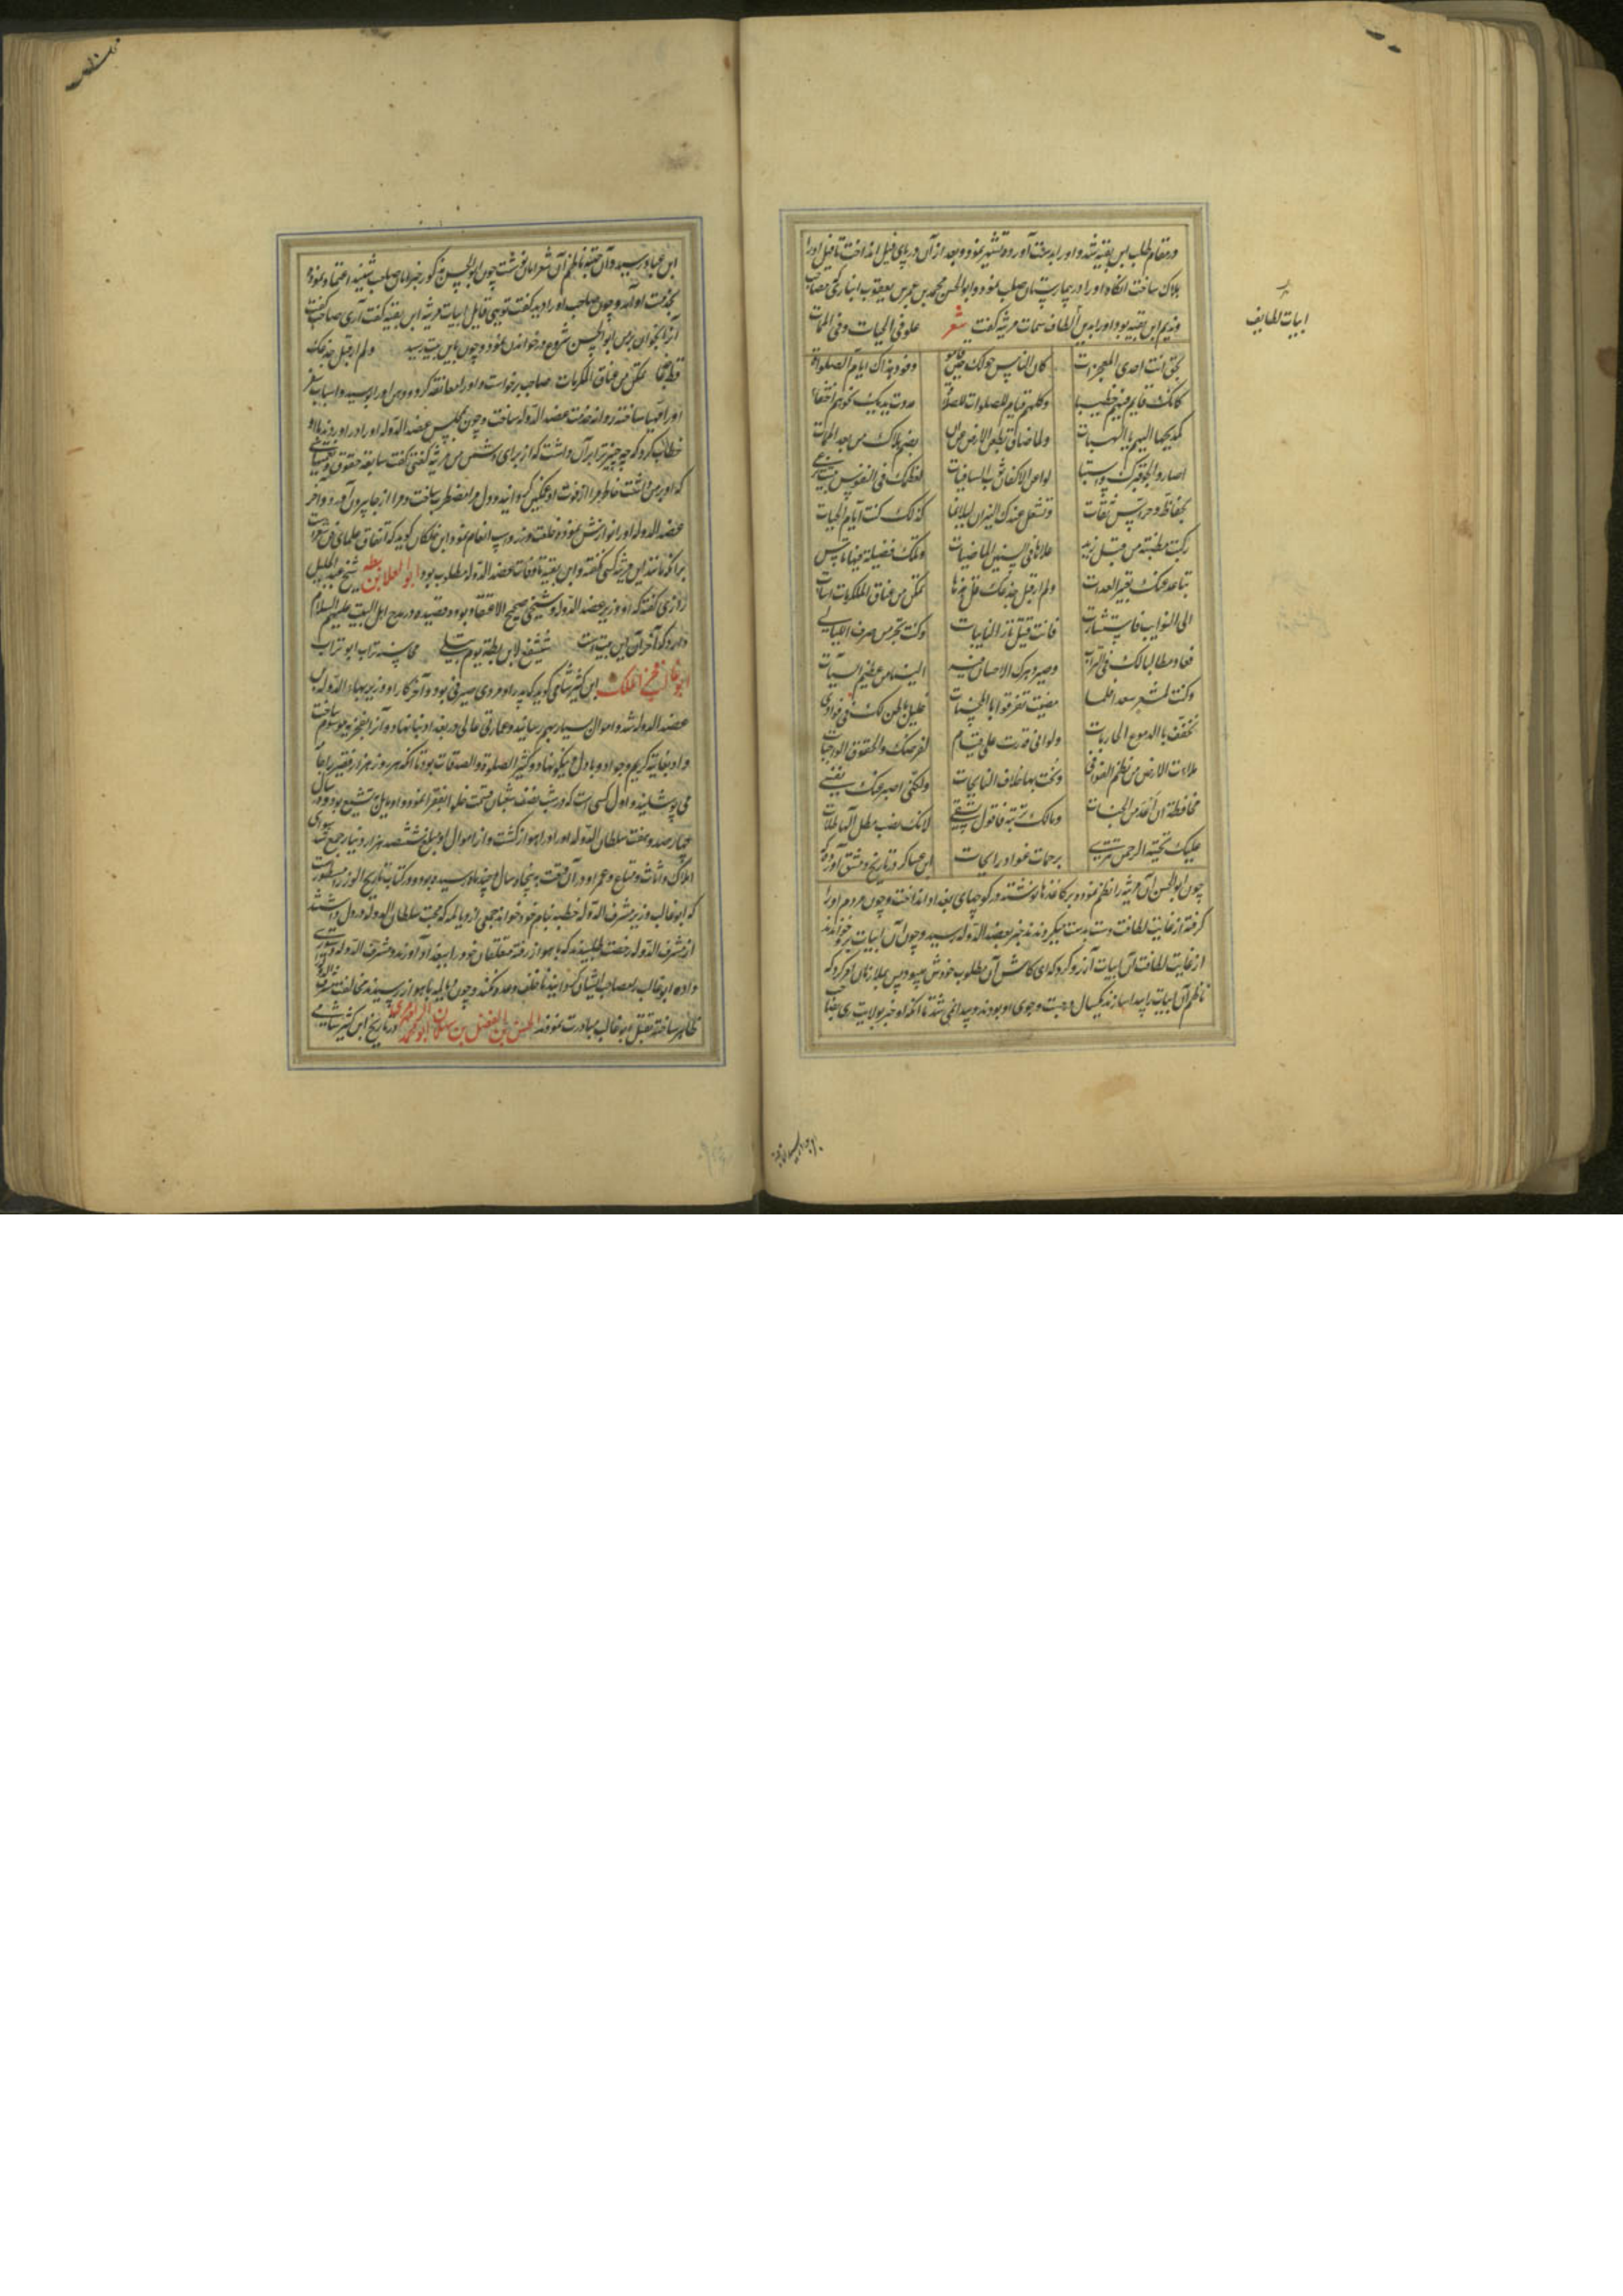 در مقام طلب ابن بقیه شد و او را بدست آورده تشهیر نمود و بعد از آن در پای فیل انداخت تا فیل او را
هلاک ساخت آنگاه او را در بیمارستان صلب نمود و ابو الحسن محمد بن عمر بن یعقوب انباری که مصاحب
و ندیم ابن بقیه بود او را بدین الطاف سمات مرثیه گفت شعر علو فی الحیات و فی الممات
ابیات لطایف
بحق انت احدی المعجزات کان الناس حولک حین قاموا وفود نداک ایام الصلوة
کانک قایم فیهم خطیبا وکلهم قیام للصلوات مددت یدیک نحوهم احتفا
کمدیکها الیهم بالهبات ولما ضاق بطن الارض عن ان یضم علاک من بعد الممات
اصاروا الجو قبرک و لواعن الاکفان ثوب السافیات لعظمک فی النفوس تبیت
بحفاظ و حراس ثقات و تشعل عندک النیران لیلا کذلک کنت ایام الحیات
رکبت مطیة من قبل زید علاها فی السنین الماضیات و تلک فضیلة فیها تاس
تباعد عنک تعییر العدات ولم ار قبل جذعک قط جذعا تمکن من عناق المکرمات
الی النوایب فاستثارت فانت قتیل ثار النایبات وکنت تجیر من صرف اللیالی
فعاد مطالبا لک فی الترات وصیر دهرک الاحسان فیه الینا من عظیم السیآت
وکنت لمعشر سعدا فلما مضیت تفرقوا بالمحسنات غلیل باطن لک فی فوادی
یخفف بالدموع الجاریات ولو انی قدرت علی قیام لفرضک والحقوق الواجبات
ملاءت الارض من نظم القوافی ونحت بها خلاف النایحات ولکنی اصبر عنک نفسی
مخافة ان اعد من الجنات ومالک تربة فاقول تسقی لانک نصب هطل الهاطلات
علیک تحیة الرحمن تتری برحمات غواد رایحات ابن عساکر در تاریخ دمشق آورده که
چون ابو الحسن آن مرثیه را نظم نمود و بر کاغذ ها نوشته در کوچهای بغداد انداخت و چون مردم او را
گرفته از غایت لطافت دست بدست میکردند خبر بعضد الدوله رسید و چون آن ابیات بر او خواندند
از غایت لطافت آن ابیات آرزو کرد که ای کاش آن مصلوب خودش میبود پس بملازمان امر کرد که
ناظم آن ابیات را پیدا سازند یکسال در جست و جوی او بودند و پیدا نمی شد تا آنکه او خبر بولایت ری بصاحب
ابن عباد رسید و آن حقیقه ناظم آن شعر امان نوشت چون ابو الحسن مذکور خبر امان صاحب شنید اعتماد نموده
بخدمت او آمد و چون صاحب او را دید گفت تویی قایل ابیات مرثیه ابن بقیه گفت آری صاحب گفت
آنرا بخوان پس ابو الحسن شروع در خواندن نمود و چون باین بیت رسید ولم ار قبل جذعک
قط جذعا تمکن من عناق المکرمات صاحب برخواست و او را معانقه کرد و دهن او را بوسید و اسباب سفر
او را مهیا ساخته روانه خدمت عضد الدوله ساخت و چون بمجلس عضد الدوله او را در آوردند با او
خطاب کرد که چه چیز ترا بر آن داشت که از برای دشمن من مرثیه گفتی گفت سابقه حقوق و نعمتهای
که او بر من داشت خاطر مرا از فوت او غمگین گردانید و دل مرا مضطر ساخت و مرا از جا بیرون آورد و آخر
عضد الدوله او را نوازش نموده خلعت و زر و اسب انعام نمود و ابن خلکان گوید که اتفاق علمای فن شعر است
بر آنکه مانند این مرثیه کسی نگفته و ابن بقیه تا وفات عضد الدوله مصلوب بود ابو العلا بن بطه شیخ عبد الجلیل
رازی گفته که او وزیر عضد الدوله و شیعی صحیح الاعتقاد بود و قصیده در مدح اهل البیت علیهم السلام
دارد که آخر آن این بیت است شفیع لابن بطة یوم تبلی محاسنه تراب ابو تراب
ابو غالب فخر الملک ابن کثیر شامی گوید که پدر او مردی صیرفی بود و آخر کار او وزیر بهاء الدوله بن
عضد الدوله شد و اموال بسیار بهم رسانید و عمارتی عالی در بغداد بنا نهاد و آنرا بفخریه موسوم ساخت
و او بغایة کریم و جواد و باذل و نیکو نهاد و کثیر الصلوة و الصدقات بود تا آنکه هر روز هزار فقیر را جامه
می پوشانید و اول کسی است که در شب نصف شعبان قسمت حلوا بفقرا نمود و او مایل بتشیع بود و در سال
چهار صد و هفت سلطان الدوله او را در اهواز کشت و از اموال او مبلغ ششصد هزار دینار جمع شد سوای
املاک و اثاث و متاع و عمر او در آن وقت به پنجاه سال و چند ماه رسیده بود و در کتاب تاریخ الوزرا مسطور است
که ابو غالب وزیر مشرف الدوله خطبه بنام خود خواند جمعی از دیالمه که محبت سلطان الدوله در دل داشتند
از مشرف الدوله رخصت طلبیدند که باهواز رفته متعلقان خود را ببغداد آورند و مشرف الدوله دستوری
داده ابو غالب را مصاحب ایشان گردانید تا خلف وعده نکنند و چون دیالمه باهواز رسیدند مخالفت مشرف الدوله
ظاهر ساخته بقتل ابو غالب مبادرت نمودند الحسن بن الفضل بن سهلان ابو محمد الرامهرمزی در تاریخ ابن کثیر شامی